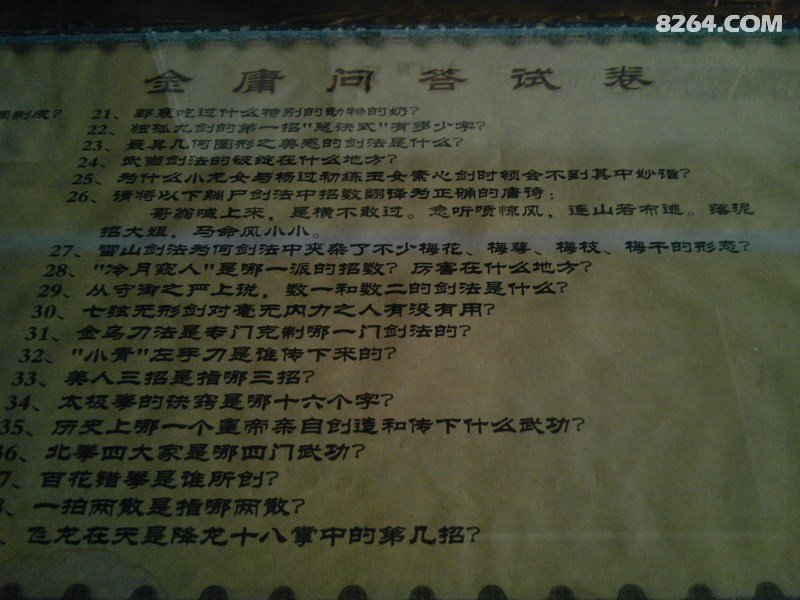 8264.COM
金庸问答试卷
制成？
21、郭襄吃过什么特别的动物的奶？
22、独孤九剑的第一招"总诀式"有多少字？
23、最具几何图形之美感的剑法是什么？
24、武当剑法的破绽在什么地方？
25、为什么小龙女与杨过初练玉女素心剑时领会不到其中妙诣？
26、请将以下躺尸剑法中招数翻译为正确的唐诗：
哥翁喊上来，是横不敢过。忽听喷惊风，连山若布逃。落泥
招大姐，马命风小小。
27、雪山剑法为何剑法中夹杂了不少梅花、梅萼、梅枝、梅干的形态？
28、"冷月窥人"是哪一派的招数？厉害在什么地方？
29、从守御之严上说，数一和数二的剑法是什么？
30、七弦无形剑对毫无内力之人有没有用？
31、金乌刀法是专门克制哪一门剑法的？
32、"小青"左手刀是谁传下来的？
33、美人三招是指哪三招？
34、太极拳的诀窍是哪十六个字？
35、历史上哪一个皇帝亲自创造和传下什么武功？
36、北拳四大家是哪四门武功？
7、百花错拳是谁所创？
、一拍两散是指哪两散？
、飞龙在天是降龙十八掌中的第几招？